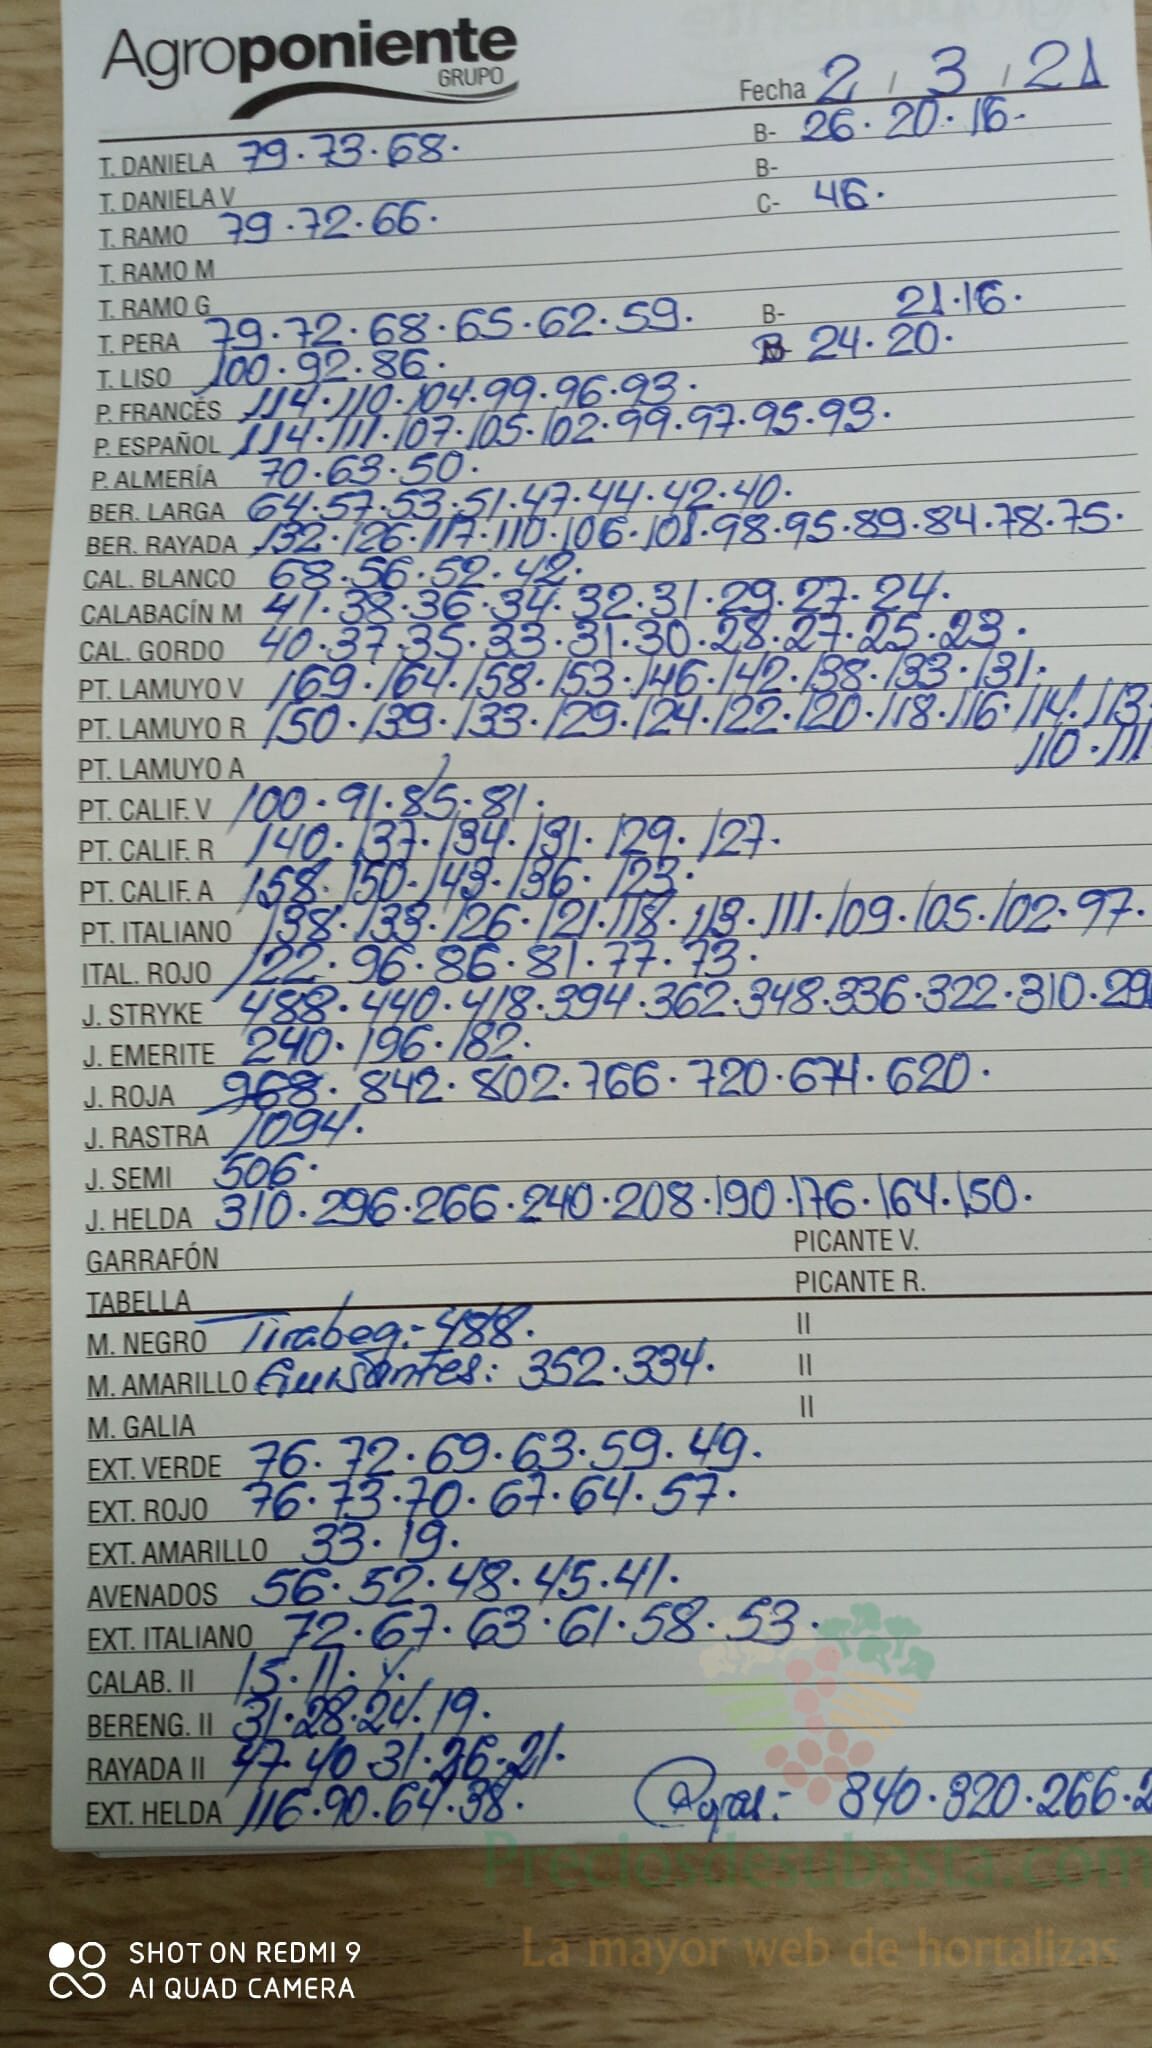 Agroponiente
GRUPO
Fecha 2 / 3 / 21
T. DANIELA 79.73.68. B- 26.20.16.
T. DANIELA V B-
T. RAMO 79.72.66. C- 46.
T. RAMO M
T. RAMO G
T. PERA 79.72.68.65.62.59. B- 21.16.
T. LISO 100.92.86. 24.20.
P. FRANCÉS 114.110.104.99.96.93.
P. ESPAÑOL 114.111.107.105.102.99.97.95.93.
P. ALMERÍA 70.63.50.
BER. LARGA 64.57.53.51.47.44.42.40.
BER. RAYADA 132.126.117.110.106.101.98.95.89.84.78.75.
CAL. BLANCO 68.56.52.42.
CALABACÍN M 41.38.36.34.32.31.29.27.24.
CAL. GORDO 40.37.35.33.31.30.28.27.25.23.
PT. LAMUYO V 169.164.158.153.146.142.138.133.131.
PT. LAMUYO R 150.139.133.129.124.122.120.118.116.114.113
110.111
PT. LAMUYO A
PT. CALIF. V 100.91.85.81.
PT. CALIF. R 140.137.134.131.129.127.
PT. CALIF. A 158.150.143.136.123.
PT. ITALIANO 138.133.126.121.118.113.111.109.105.102.97.
ITAL. ROJO 122.96.86.81.77.73.
J. STRYKE 488.440.418.394.362.348.336.322.310.29
J. EMERITE 240.196.182.
J. ROJA 968.842.802.766.720.674.620.
J. RASTRA 1094.
J. SEMI 506.
J. HELDA 310.296.266.240.208.190.176.164.150.
GARRAFÓN PICANTE V.
TABELLA PICANTE R.
M. NEGRO Tirabeq.- 488. II
M. AMARILLO Guisantes: 352.334. II
M. GALIA II
EXT. VERDE 76.72.69.63.59.49.
EXT. ROJO 76.73.70.67.64.57.
EXT. AMARILLO 33.19.
AVENADOS 56.52.48.45.41.
EXT. ITALIANO 72.67.63.61.58.53.
CALAB. II 15.11.
BERENG. II 31.28.24.19.
RAYADA II 47.40.31.26.21.
EXT. HELDA 116.90.64.38. 840.320.266.2
Preciosdesubasta.com
La mayor web de hortalizas
SHOT ON REDMI 9
AI QUAD CAMERA